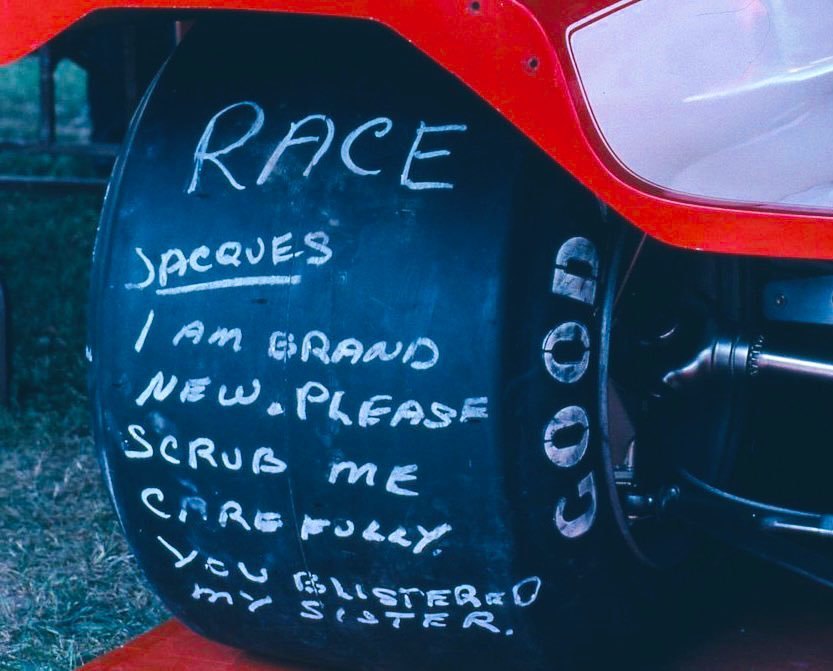 RACE
JACQUES
I AM BRAND
NEW. PLEASE
SCRUB ME
CAREFULLY.
YOU BLISTERED
MY SISTER.
GOOD